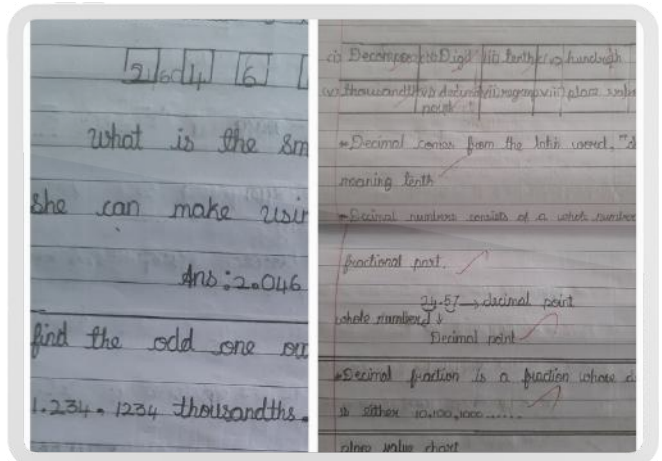 2 0 4 6
What is the sm
she can make usin
Ans: 2.046
find the odd one ou
1.234. 1234 thousandths.
(i) Decompose (ii) Digit (iii) tenth (iv) hundredth
(v) thousandth (vi) decimal (vii) regroup (viii) place value
point
Decimal comes from the latin word, "d
meaning tenth
Decimal numbers consists of a whole number
fractional part.
24.57 → decimal point
whole number
Decimal point
Decimal fraction is a fraction whose d
is either 10,100,1000......
place value chart